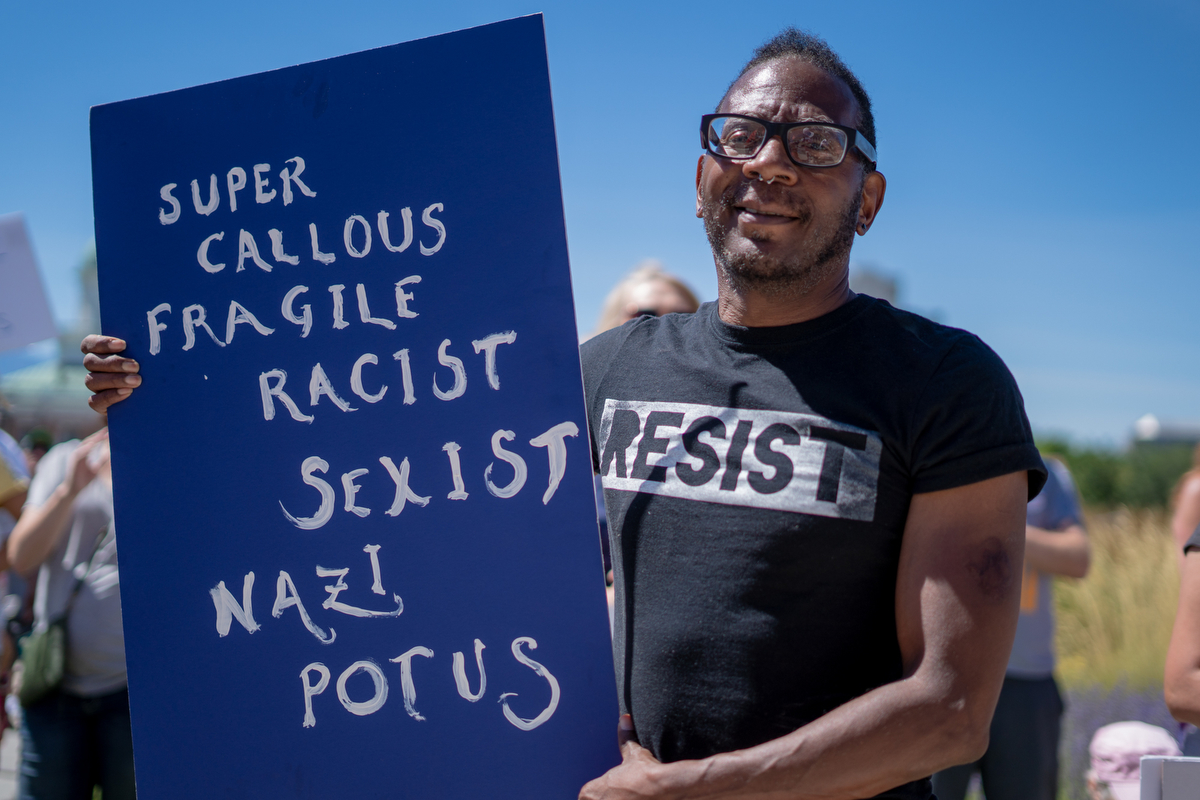 SUPER
CALLOUS
FRAGILE
RACIST
SEXIST
NAZI
POTUS
RESIST